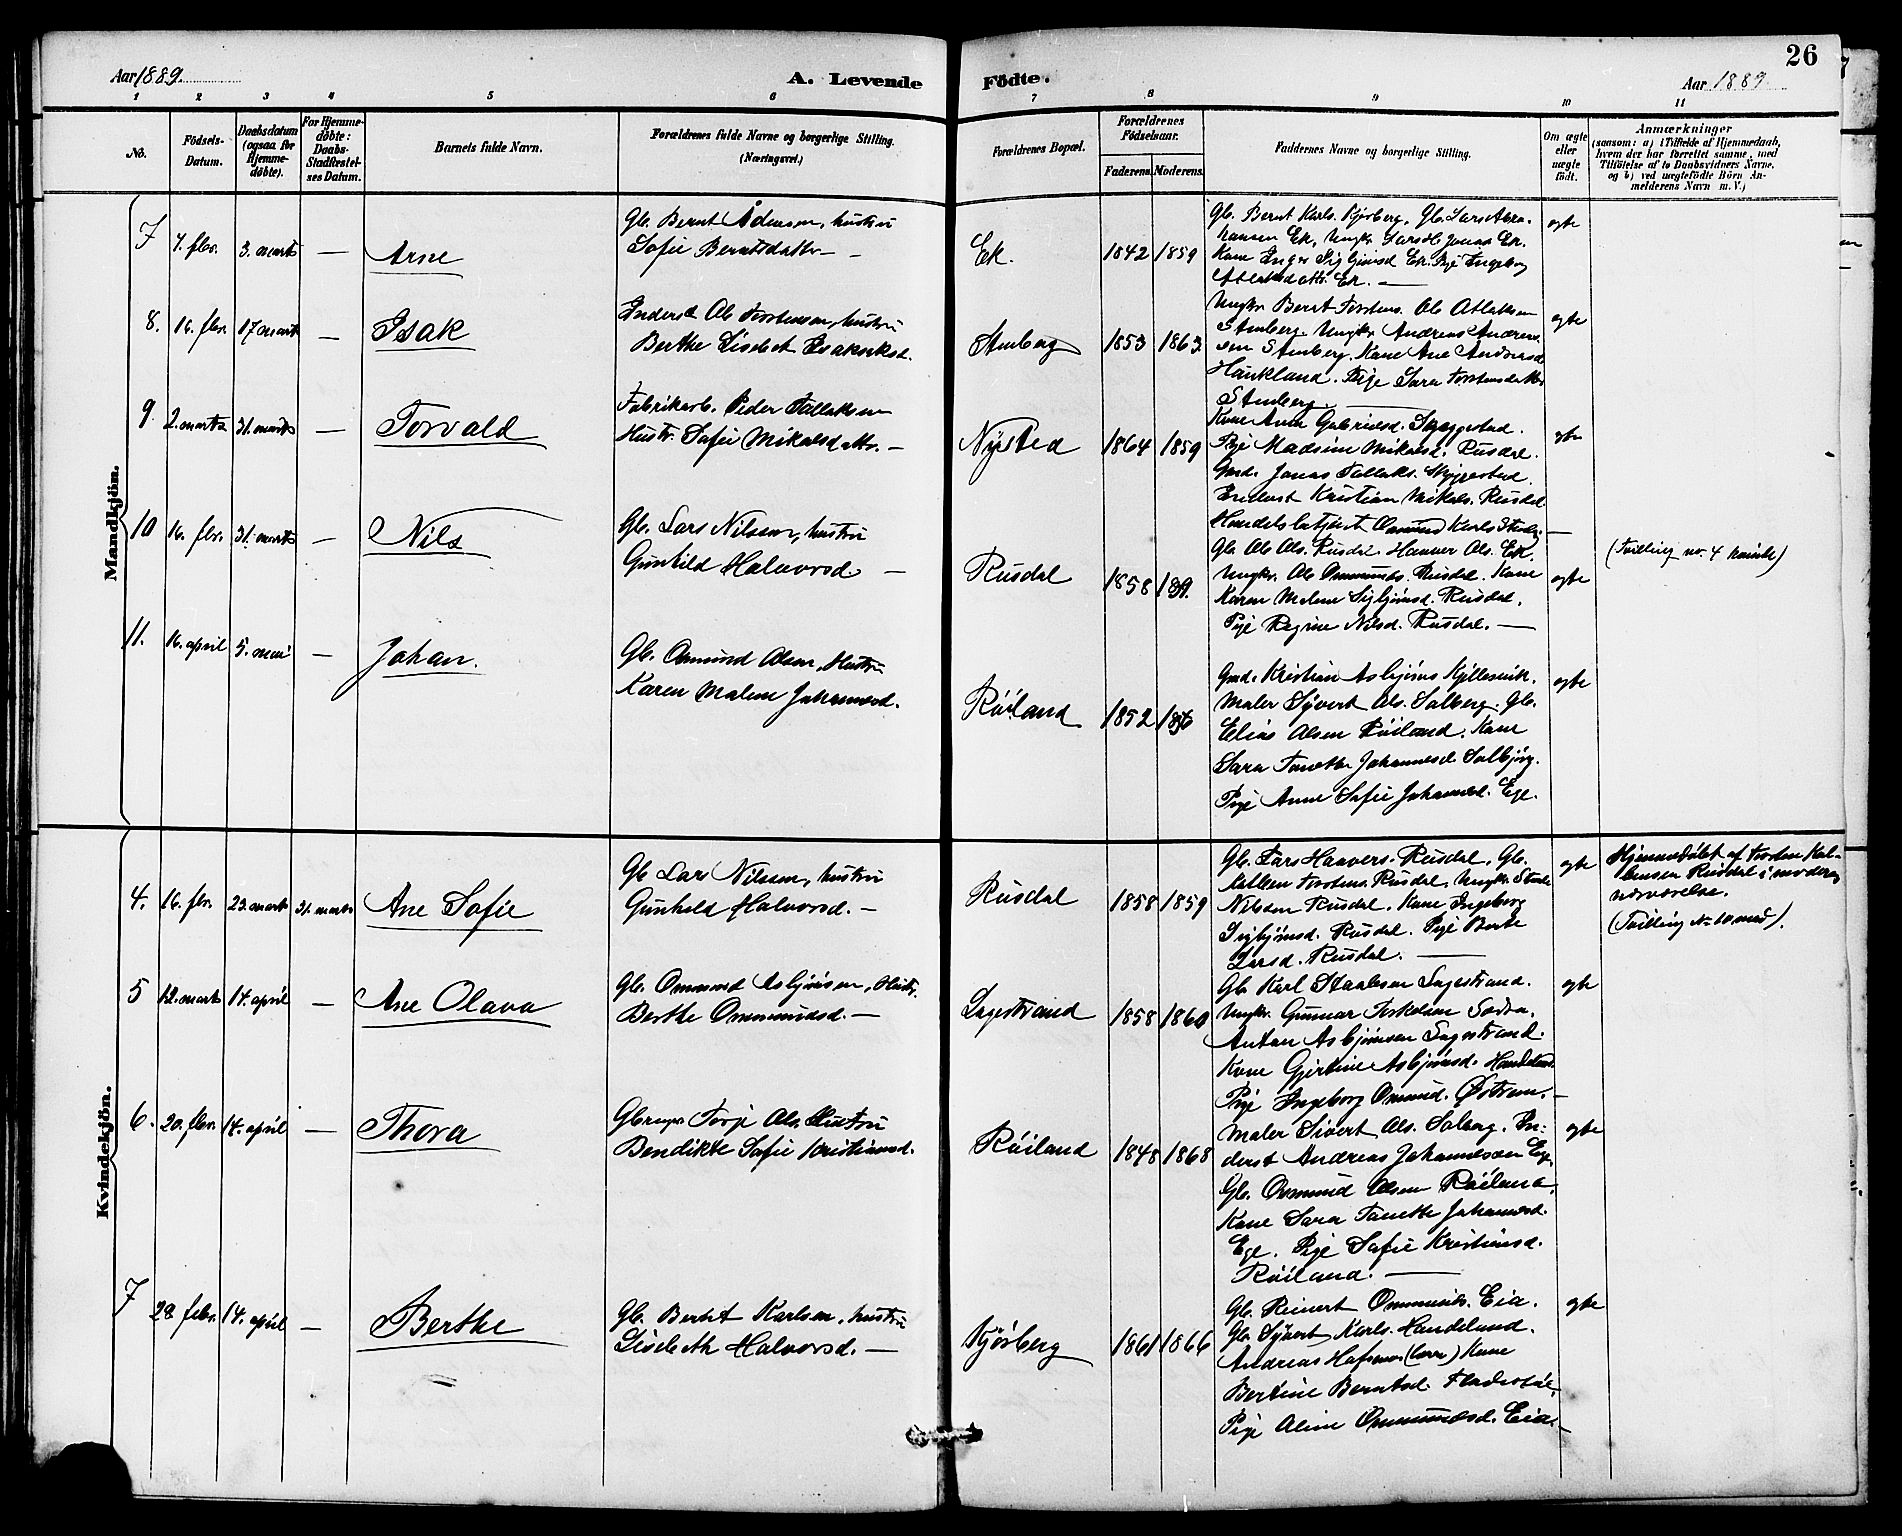 26
Aar 1889.
A. Levende Födte.
Aar 1889.
1 2 3 4 5 6 7 8 9 10 11
No.
Födsels-Datum.
Daabsdatum (ogsaa for Hjemme-döbte).
For Hjemme-döbte: Daabs-Stadfæstel-ses Datum.
Barnets fulde Navn.
Forældrenes fulde Navne og borgerlige Stilling.
(Næringsvei.)
Forældrenes Bopæl.
Forældrenes Födselsaar.
Faderens. Moderens.
Faddernes Navne og borgerlige Stilling.
Om ægte eller uægte födt.
Anmærkninger
(saasom: a) i Tilfælde af Hjemmedaab, hvem der har forrettet samme, med Tilföielse af to Daabsvidners Navne, og b) ved uægtefödte Börn An-melderens Navn m. V.)
Mandkjön.
7 7. fbr. 3. marts — Arne
Gb. Bernt Ådnesen, hustru
Sofie Berntsdatter —
Ek. 1842 1859
Gb. Bernt Karls. Kjørberg, Gb. Lars Abra-
hamsen Ek, Ungkr. Lars Jonas Ek.
Kone Inger Sigbjørnsd Ek. Pige Ingeborg
Atlaksdattr. Ek. —
egte
8. 16. fbr. 17 marts — Isak
Inderst Ole Torstensen, hustru
Berthe Lisebet Isaksd.
Stenberg 1853 1863
Ungkr. Bernt Torstens. Ole Atlaksen
Stenberg. Ungkr. Andreas Andreas-
sen Stenberg. Kone Ane Andersd
Haukland. Pige Sara Torstensdattr
Stenberg. —
egte
9. 2. marts 31. marts — Torvald
Fabrikarb. Peder Tallaksen
Hustr. Sofie Mikalsdattr. —
Nysted 1864 1859
Kone Anne Gabrielsd. Skjeggestad.
Pige Madsine Mikalsd. Rusdal.
Gmd. Jonas Tallaks. Skjeggestad.
Inderst Kristian Mikals. Rusdal
Handelsbetjent Omund Karls Stenb. —
egte
10 16. fbr. 31. marts — Nils
Gb. Lars Nilssen, hustru
Gunhild Halvorsd. —
Rusdal 1858 1859.
Gb. Ole Ols. Rusdal. Hanver Ols. Ek.
Ungkr. Ole Ommunds. Rusdal. Kone
Karen Malene Sigbjørnsd. Rusdal.
Pige Regine Nilsd. Rusdal. —
egte
(Tvilling no. 4 kvinde)
11. 16. april 5. mai — Johan.
Gb. Osmund Olsen, Hustru
Karen Malene Johannesd.
Røiland 1852 1856
Gmd. Kristian Asbjørns Kjellesvik.
Maler Syvert Ols. Solberg. Gb.
Elias Olsen Røiland. Kone
Sara Tonette Johannesd Solbjørg.
Pige Anne Sofie Johannesd. Ege.
egte
Kvindekjön.
4. 16. fbr. 23. marts 31. marts Ane Sofie
Gb Lars Nilssen, hustru
Gunhild Halvorsd. —
Rusdal 1858 1859
Gb. Lars Haavers. Rusdal, Gb.
Kolben Torstens. Rusdal, Ungkr. Stale
Nilssen Rusdal. Kone Ingeborg
Sigbjørnsd. Rusdal. Pige Berte
Larsd. Rusdal. —
egte
Hjemmedøbt af Torsten Kol-
bensen Rusdal i moderens
nærværelse.
(Tvilling No 10 mand).
5 12. marts 14. april — Ane Olava
Gb. Ommund Asbjørnsen, Hustr.
Berthe Ommundsd. —
Lagestrand 1858 1860
Gb. Karl Staalesen Lagestrand.
Ungkr. Gunnar Torkelsen
Anton Asbjørnsen Lagestrand.
Kone Gjertine Asbjørnsd. Handeland.
Pige Ingeborg Omund. Østrem. —
egte
6. 20. fbr. 14. april — Thora
Torje Ols. Hustru
Bendikte Sofie Kristiansd.
Røiland 1848 1868
Maler Sivert Ols. Solberg. In-
derst Andreas Johannesen Ege.
Gb. Osmund Olsen Røiland.
Kone Sara Tonette Johannesd.
Ege. Pige Sofie Kristiansd.
Røiland. —
egte
7 28 febr. 14. april — Berthe
Gb. Berent Karlsen, hustru
Lisebeth Halvorsd. —
Kjørberg 1861 1866
Gb. Reinert Ommunds. Eia.
Gb. Syvert Karls. Handeland.
Andreas Kone
Bertine Berntsd. Fladestøl.
Pige Aline Ommundsd. Eia. —
egte